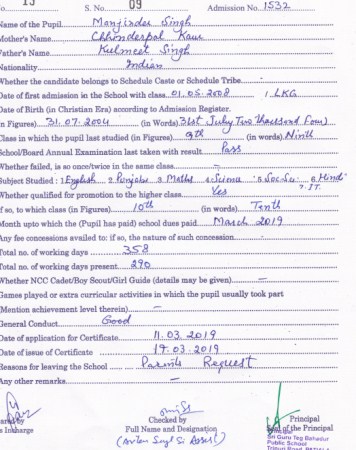 o. 13 S. No. 09 Admission No. 1532
Name of the Pupil Manjinder Singh
Mother's Name Chhinderpal Kaur
Father's Name Kulmeet Singh
Nationality Indian
Whether the candidate belongs to Schedule Caste or Schedule Tribe
Date of first admission in the School with class 01.05.2008 LKG
Date of Birth (in Christian Era) according to Admission Register.
in Figures) 31.07.2004 (in Words) 31st July Two Thousand Four)
Class in which the pupil last studied (in Figures) 9th (in words) Ninth
School/Board Annual Examination last taken with result Pass
Whether failed, is so once/twice in the same class —
Subject Studied : 1 English 2 Punjabi 3 Maths 4 Science 5 Soc-Sc. 6 Hindi
7. IT.
Whether qualified for promotion to the higher class Yes
if so, to which class (in Figures) 10th (in words) Tenth
Month upto which the (Pupil has paid) school dues paid March 2019
Any fee concession availed to: if so, the nature of such concession
Total no. of working days 358
Total no. of working days present 290
Whether NCC Cadet/Boy Scout/Girl Guide (details may be given) —
Games played or extra curricular activities in which the pupil usually took part
(Mention achievement level therein) —
General Conduct Good
Date of application for Certificate 11.03.2019
Date of issue of Certificate 19.03.2019
Reasons for leaving the School Parents Request
Any other remarks —
Checked by Principal
s Incharge Full Name and Designation Seal of the Principal
Principal
Sri Guru Teg Bahadur
Public School